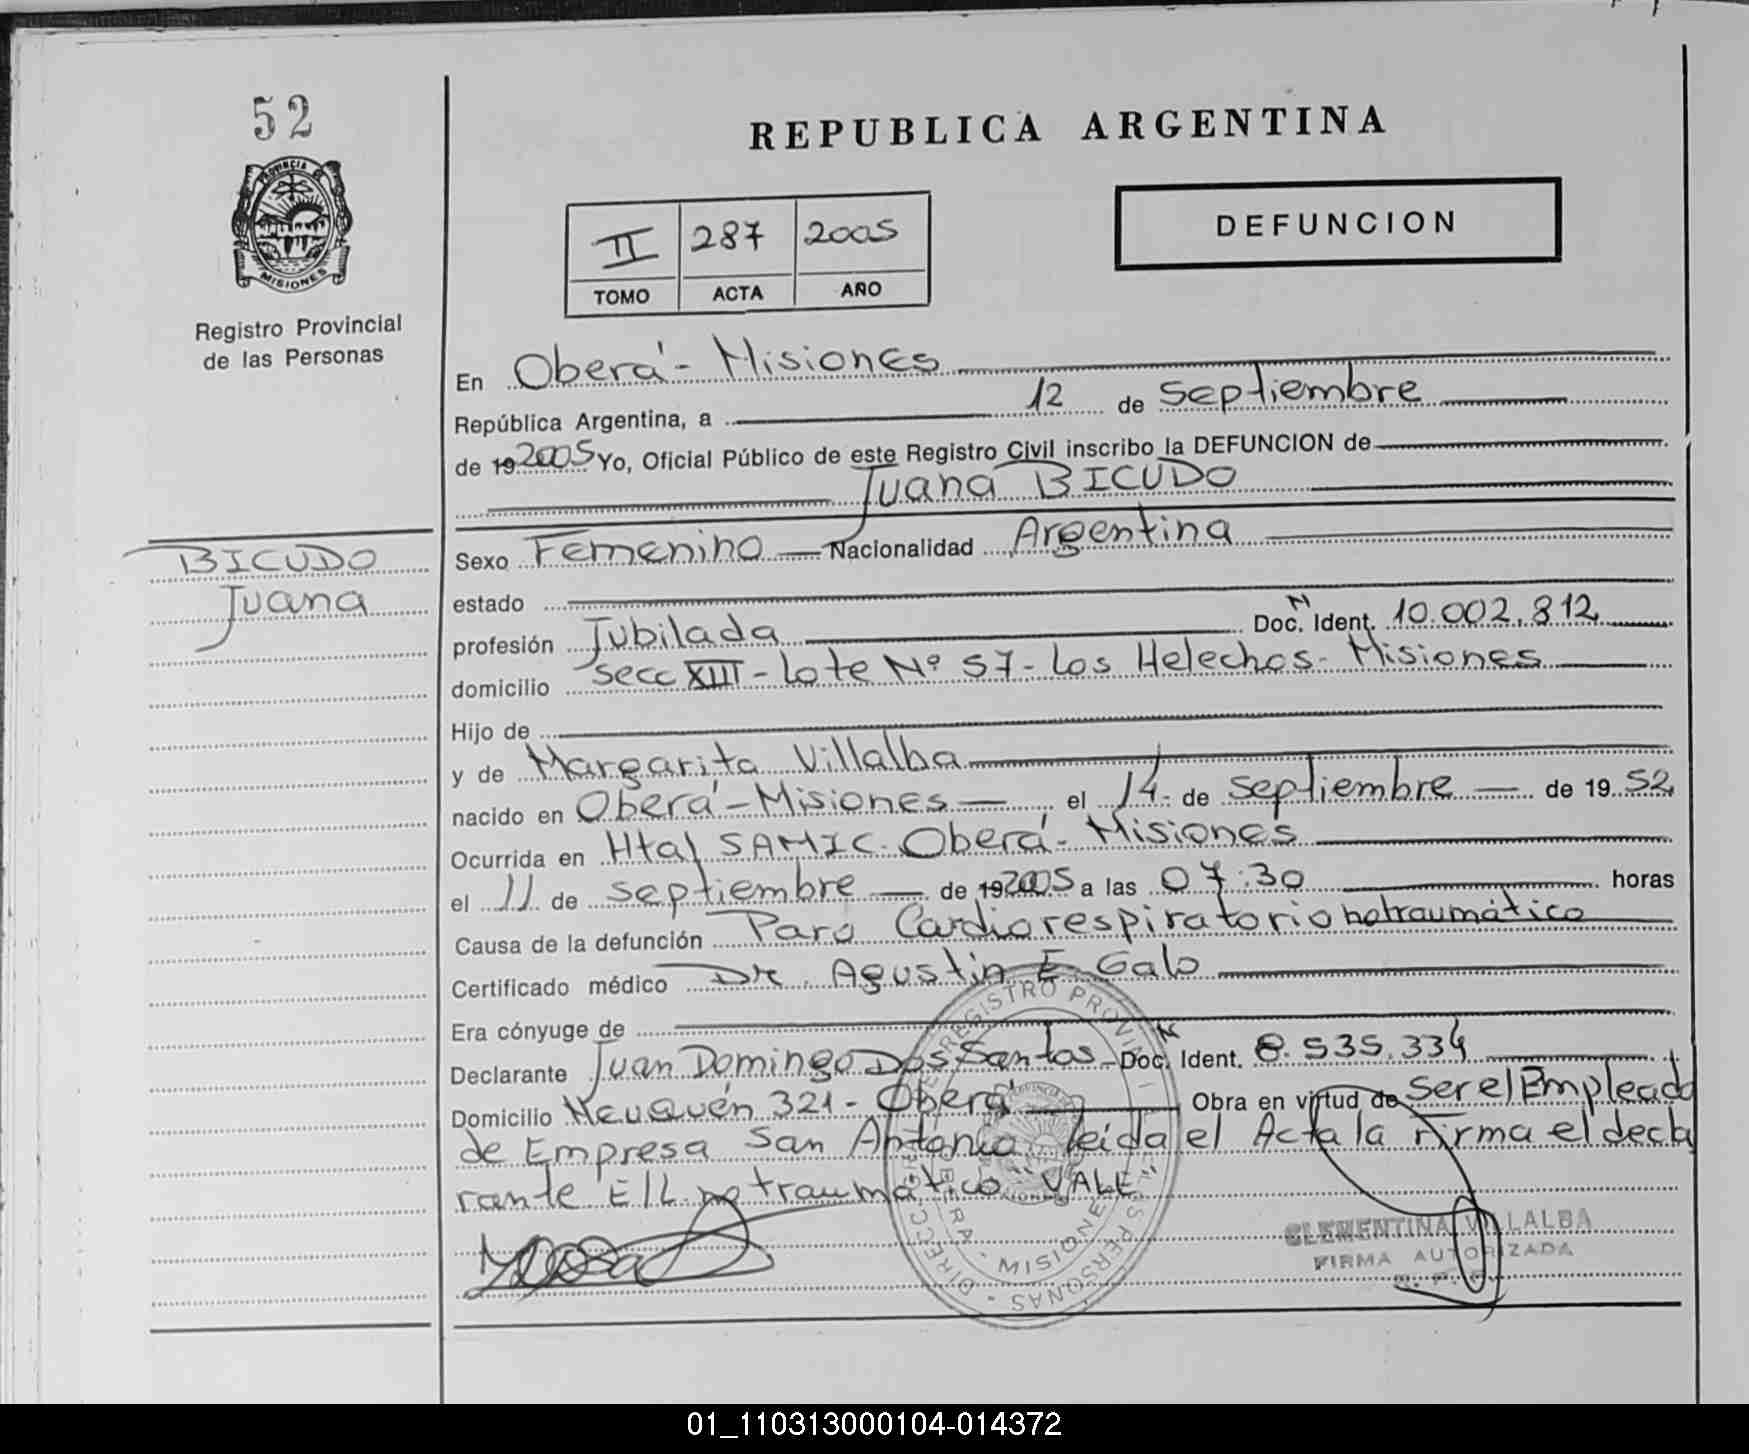 52
REPUBLICA ARGENTINA
PROVINCIA DE
MISIONES
Registro Provincial
de las Personas
II 287 2005
TOMO ACTA AÑO
DEFUNCION
En Oberá - Misiones
República Argentina, a 12 de septiembre
de 19 2005 Yo, Oficial Público de este Registro Civil inscribo la DEFUNCION de
Juana BICUDO
BICUDO
Juana
Sexo Femenino Nacionalidad Argentina
estado
profesión Jubilada Doc. N Ident. 10.002.812
domicilio secc XIII - lote Nº 57 - Los Helechos - Misiones
Hijo de
y de Margarita Villalba
nacido en Oberá - Misiones - el 14 de septiembre - de 19 52
Ocurrida en Htal SAMIC. Oberá - Misiones
el 11 de septiembre - de 19 2005 a las 07:30 horas
Causa de la defunción Paro Cardiorespiratorio notraumático
Certificado médico Dr. Agustin E Galo
Era cónyuge de
Declarante Juan Domingo Dos Santos - Doc. N Ident. 8.535.334
Domicilio Neuquén 321 - Oberá Obra en virtud de ser el Empleado
de Empresa San Antonio leída el Acta la firma el decla
rante E/L no traumático "VALE"
REGISTRO PROVINCIAL
PERSONAS
MISIONES
CLEMENTINA VILLALBA
FIRMA AUTORIZADA
01_110313000104-014372